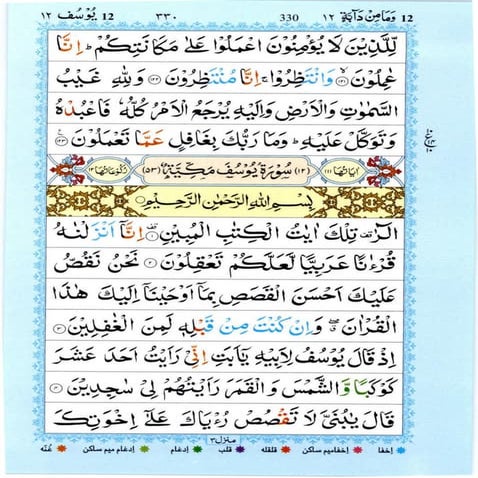 12 يُوْسُف ١٢ ٣٣٠ 330 وَمَا مِنْ دَآبَّةٍ ١٢ 12
لِّلَّذِيْنَ لَا يُؤْمِنُوْنَ اعْمَلُوْا عَلٰى مَكَانَتِكُمْ ؕ اِنَّا
عٰمِلُوْنَ ۙ﴿۱۲۱﴾ وَانْتَظِرُوْا ۚ اِنَّا مُنْتَظِرُوْنَ ﴿۱۲۲﴾ وَلِلّٰهِ غَيْبُ
السَّمٰوٰتِ وَالْاَرْضِ وَاِلَيْهِ يُرْجَعُ الْاَمْرُ كُلُّهٗ فَاعْبُدْهُ
وَتَوَكَّلْ عَلَيْهِ ؕ وَمَا رَبُّكَ بِغَافِلٍ عَمَّا تَعْمَلُوْنَ ﴿۱۲۳﴾
اٰيَاتُهَا ١١١ (١٢) سُوْرَةُ يُوْسُفَ مَكِّيَّةٌ (٥٣) رُكُوْعَاتُهَا ١٢
بِسْمِ اللّٰهِ الرَّحْمٰنِ الرَّحِيْمِ
الٓرٰ ۫ تِلْكَ اٰيٰتُ الْكِتٰبِ الْمُبِيْنِ ۫﴿۱﴾ اِنَّاۤ اَنْزَلْنٰهُ
قُرْءٰنًا عَرَبِيًّا لَّعَلَّكُمْ تَعْقِلُوْنَ ﴿۲﴾ نَحْنُ نَقُصُّ
عَلَيْكَ اَحْسَنَ الْقَصَصِ بِمَاۤ اَوْحَيْنَاۤ اِلَيْكَ هٰذَا
الْقُرْاٰنَ ۖ وَاِنْ كُنْتَ مِنْ قَبْلِهٖ لَمِنَ الْغٰفِلِيْنَ ﴿۳﴾
اِذْ قَالَ يُوْسُفُ لِاَبِيْهِ يٰۤاَبَتِ اِنِّيْ رَاَيْتُ اَحَدَ عَشَرَ
كَوْكَبًا وَّالشَّمْسَ وَالْقَمَرَ رَاَيْتُهُمْ لِيْ سٰجِدِيْنَ ﴿۴﴾
قَالَ يٰبُنَيَّ لَا تَقْصُصْ رُءْيَاكَ عَلٰۤى اِخْوَتِكَ
منزل ٣
اخفا اخفا میم ساکن قلقله قلب ادغام ادغام میم ساکن غنه